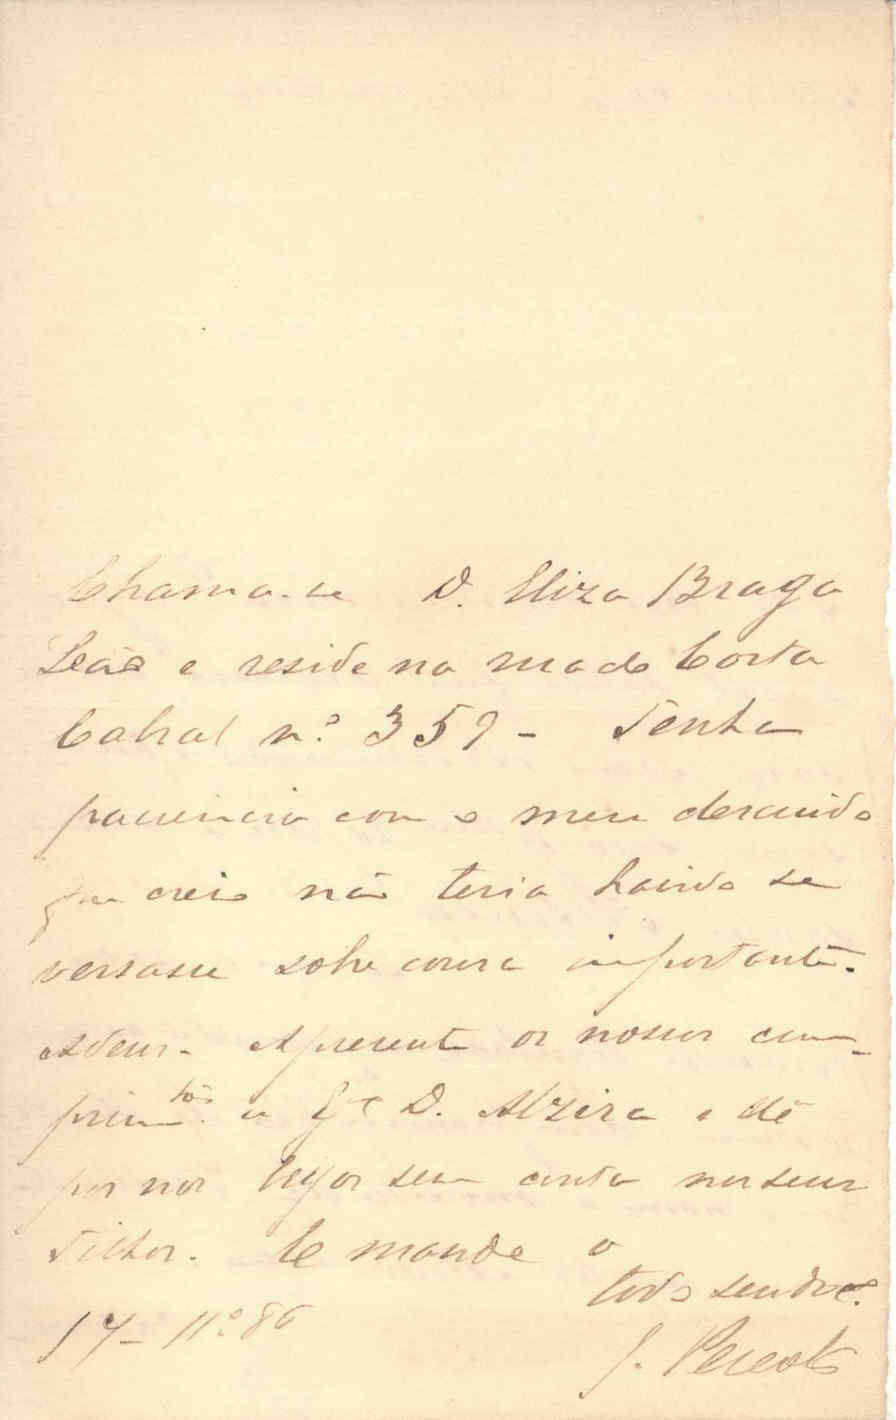 Chama-se D. Eliza Braga
Leão e reside na rua do Costa
Cabral nº 359 - Tenha
paciencia com o meu descuido
que creio não teria havido se
versasse sobre cousa importante.
Adeus. Apresente os nossos cum-
prim.tos a D. Alzira e dê
por nos beijos sem conta nos seus
filhos. E mande o
todo seu
17- 11º 86
J.